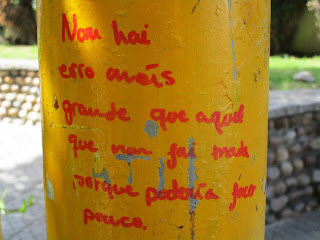 Non hai
erro máis
grande que aquel
que non fai nada
porque podería facer
pouco.